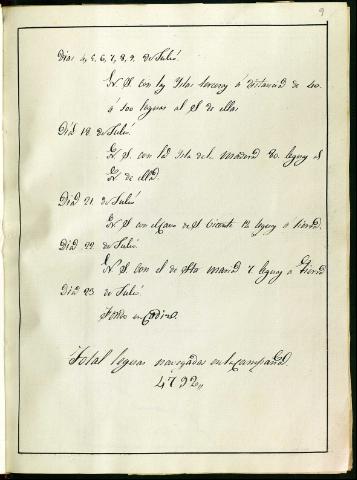 9
Dias 4, 5, 6, 7, 8, 9. de Julio.
N. S. con las Islas terceras á distancia de 40.
á 100 leguas al S. de ellas
Dia 18 de Julio.
N. S. con la Isla de la Madera 80. leguas al
N. de ella.
Dia 21. de Julio
N. S. con el cavo de S. Vicente 12 leguas á tierra.
Dia 22 de Julio.
N. S. con el de Sta Maria 7 leguas á tierra
Dia 23 de Julio.
Fondo en Cadiz.
Total leguas navegadas en la campaña.
4792,,